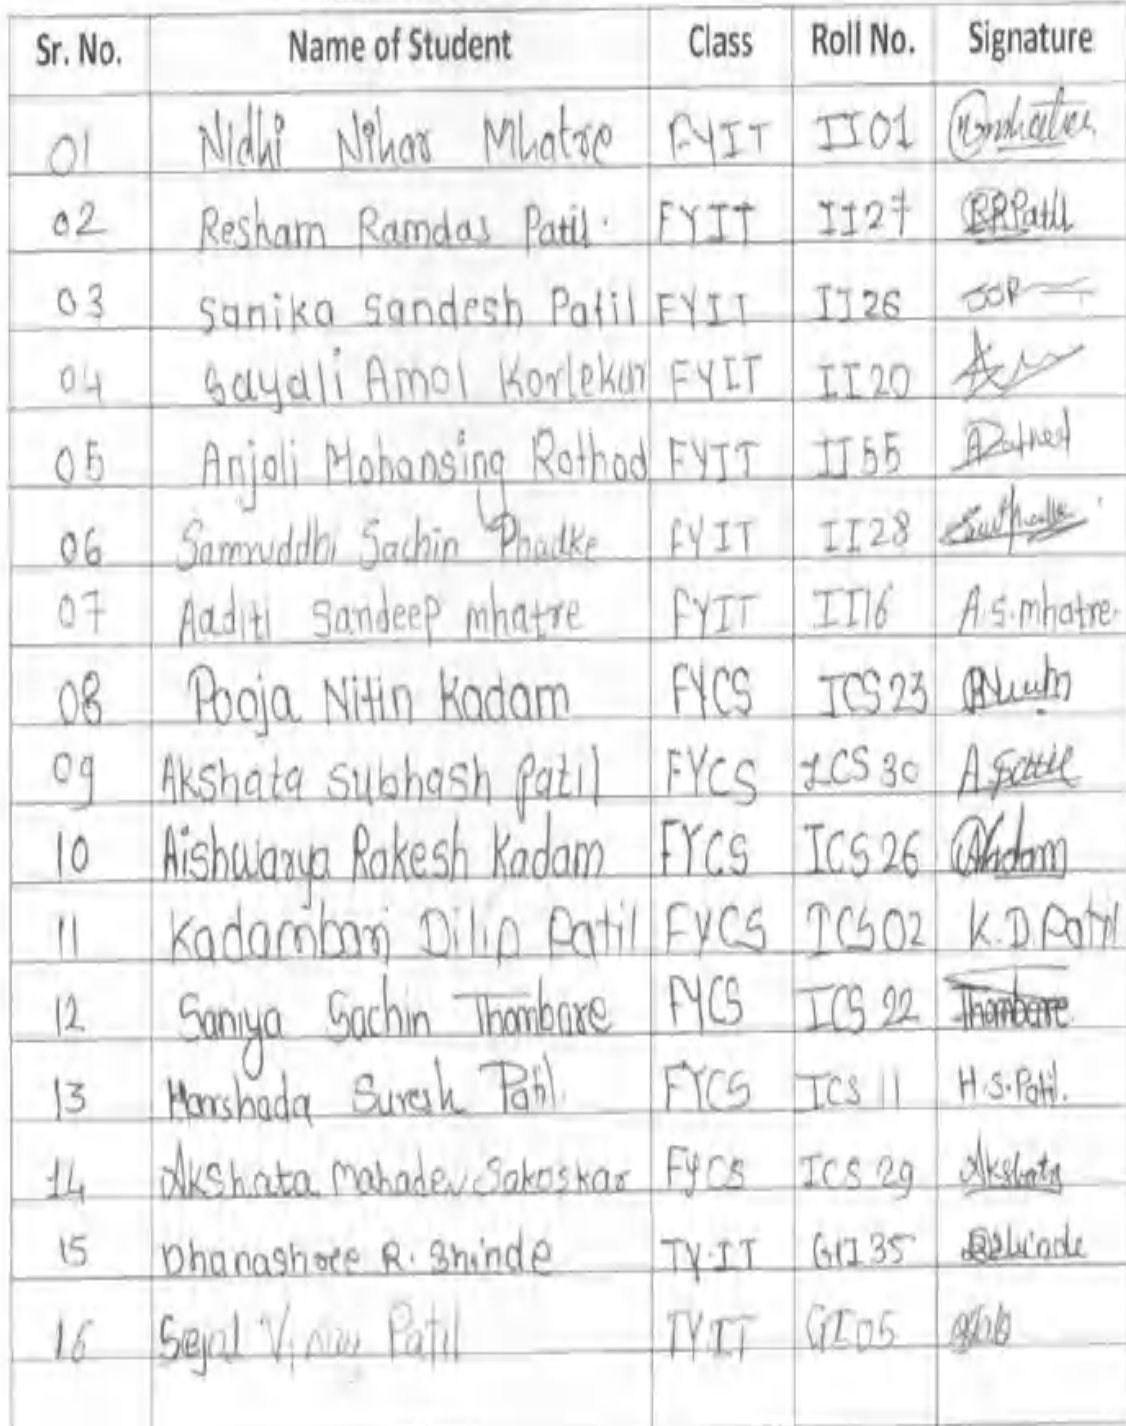 Sr. No. Name of Student Class Roll No. Signature
01 Nidhi Nihar Mhatre FYIT II01
02 Resham Ramdas Patil. FYIT II27 RRPatil
03 Sanika Sandesh Patil FYIT II26
04 Sayali Amol Korlekar FYIT II20
05 Anjali Mohansing Rathod FYIT II55
06 Samruddhi Sachin Phadke FYIT II28
07 Aaditi Sandeep mhatre FYIT II16 A.S.mhatre.
08 Pooja Nitin Kadam FYCS ICS23
09 Akshata Subhash Patil FYCS ICS 30
10 Aishwarya Rakesh Kadam FYCS ICS 26 AKadam
11 Kadambari Dilip Patil FYCS ICS02 K.D.Patil
12 Saniya Sachin Thombare FYCS ICS 22 Thombare
13 Harshada Suresh Patil. FYCS ICS 11 H.S.Patil.
14 Akshata Mahadev Sakoskar FYCS ICS 29 Akshata
15 Dhanashree R. Shinde TY.IT GII35
16 Sejal Patil TY.IT GI05